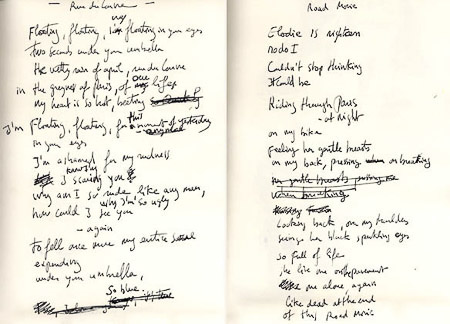 — Rue du Louvre —
my
Floating, floating, I'm floating in your eyes
Two seconds under your umbrella
The witty rain of april, rue du Louvre
in the greyness of Paris, of our lifes
My heart is so hot, beating
I'm Floating, floating, for this moment of yesterday
in your eyes
I'm ashamed for my rudness
I scared you
why am I so rude like any man,
why I'm so ugly
how could I see you
— again
to fell once more my entire
expending
under your umbrella,
so blue
Road Movie
Elodie is nighteen
so do I
Couldn't stop thinking
It could be
Riding through Paris
— at night
on my bike
Feeling her gentle breasts
on my back, pressing on breaking
her gentle breasts pressing
when breaking
Looking back, on my
seeing her black, sparkling eyes
so full of life
she like one
me alone, again
like dead at the end
of this Road Movie